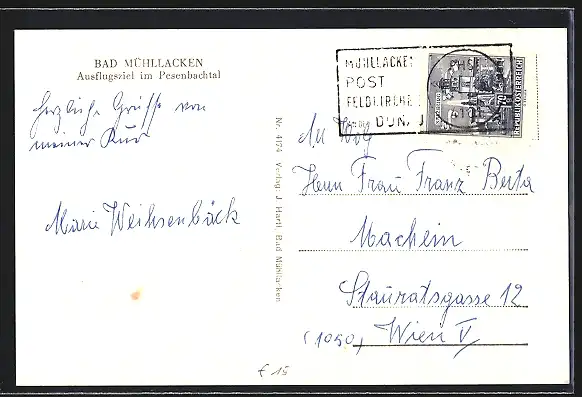 BAD MÜHLLACKEN
Ausflugsziel im Pesenbachtal
Herzliche Grüße von
meiner Kur
Marie Weihsenbäck
Nr. 4174 Verlag J. Hartl, Bad Mühllacken
MÜHLLACKEN
POST
FELDKIRCHEN
AN DER DONAU
REPUBLIK ÖSTERREICH
An Wolg
Herrn Frau Franz Berta
Machein
Stauratsgasse 12
(1050) Wien V
€ 15